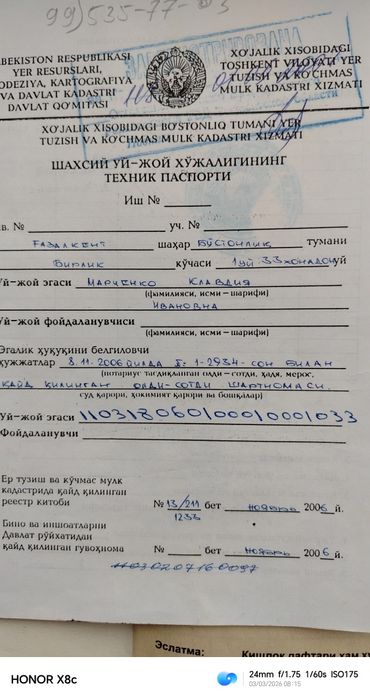 99) 535-77-03
O'ZBEKISTON RESPUBLIKASI
YER RESURSLARI,
GEODEZIYA, KARTOGRAFIYA
VA DAVLAT KADASTRI
DAVLAT QO'MITASI
XO'JALIK XISOBIDAGI
TOSHKENT VILOYATI YER
TUZISH VA KO'CHMAS
MULK KADASTRI XIZMATI
XO'JALIK XISOBIDAGI BO'STONLIQ TUMANI YER
TUZISH VA KO'CHMAS MULK KADASTRI XIZMATI
ШАХСИЙ УЙ-ЖОЙ ХЎЖАЛИГИНИНГ
ТЕХНИК ПАСПОРТИ
Иш №
кв. № уч. №
Газалкент шаҳар Бўстонлиқ тумани
Бирлик кўчаси 1 уй 33 хонадон уй
Уй-жой эгаси Марченко Клавдия
(фамилияси, исми-шарифи)
Ивановна
Уй-жой фойдаланувчиси
(фамилияси, исми-шарифи)
Эгалик ҳуқуқини белгиловчи
ҳужжатлар 8.11.2006 йилда 1-2934-сон билан
(нотариус тасдиқланган олди-сотди, ҳадя, мерос,
қайд қилинган олди-сотди шартномаси.
суд қарори, ҳокимият қарори ва бошқалар)
Уй-жой эгаси 110318060100010001033
Фойдаланувчи
Ер тузиш ва кўчмас мулк
кадастрида қайд қилинган
реестр китоби № 13/211 бет ноябрь 2006 й.
1233
Бино ва иншоотларни
Давлат рўйхатидан
қайд қилинган гувоҳнома № бет ноябрь 2006 й.
Эслатма: Қишлоқ дафтари ҳам
HONOR X8c
24mm f/1.75 1/60s ISO175
03/03/2026 08:15